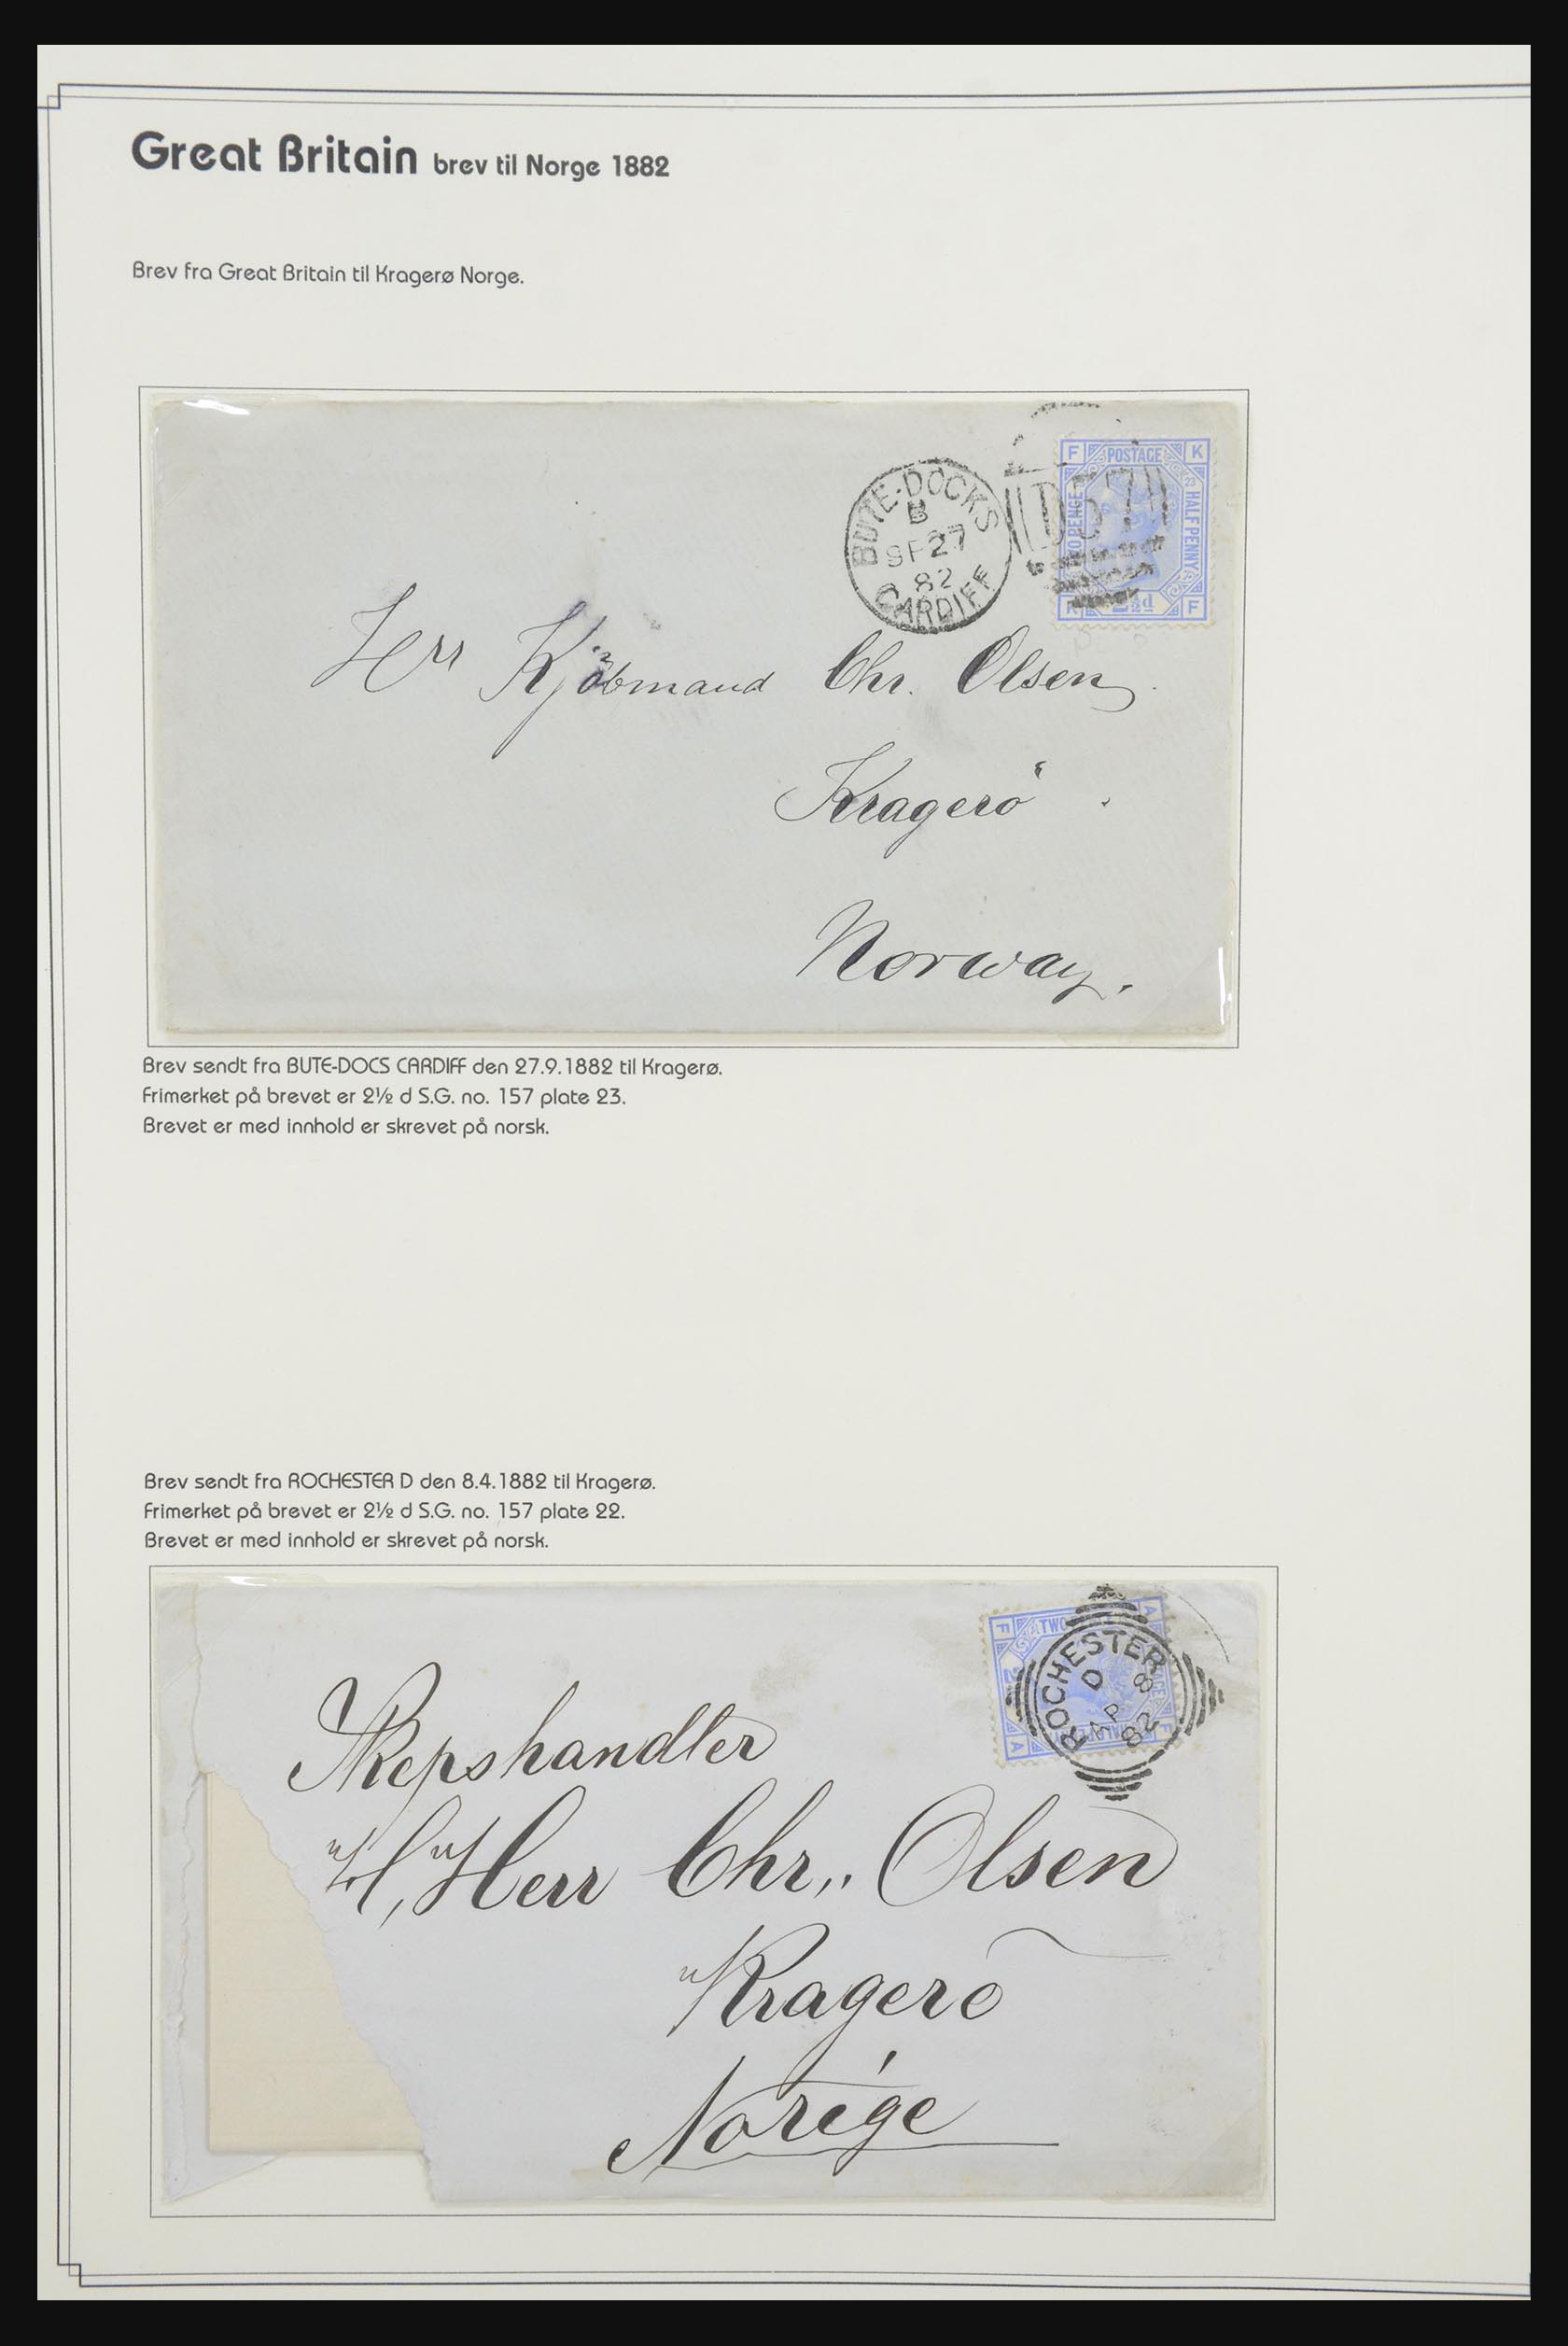 Great Britain brev til Norge 1882
Brev fra Great Britain til Kragerø Norge.
BUTE-DOCKS
B
SP 27
82
CARDIFF
D57
F POSTAGE K
23
HALFPENNY
2½d
F
Herr Kjöbmand Chr. Olsen
Kragerö
Norway.
Brev sendt fra BUTE-DOCS CARDIFF den 27.9.1882 til Kragerø.
Frimerket på brevet er 2½ d S.G. no. 157 plate 23.
Brevet er med innhold er skrevet på norsk.
Brev sendt fra ROCHESTER D den 8.4.1882 til Kragerø.
Frimerket på brevet er 2½ d S.G. no. 157 plate 22.
Brevet er med innhold er skrevet på norsk.
F TWO A
ROCHESTER
D
AP 8
82
A
Repshandler
H, Herr Chr,, Olsen
Kragerö
Norége